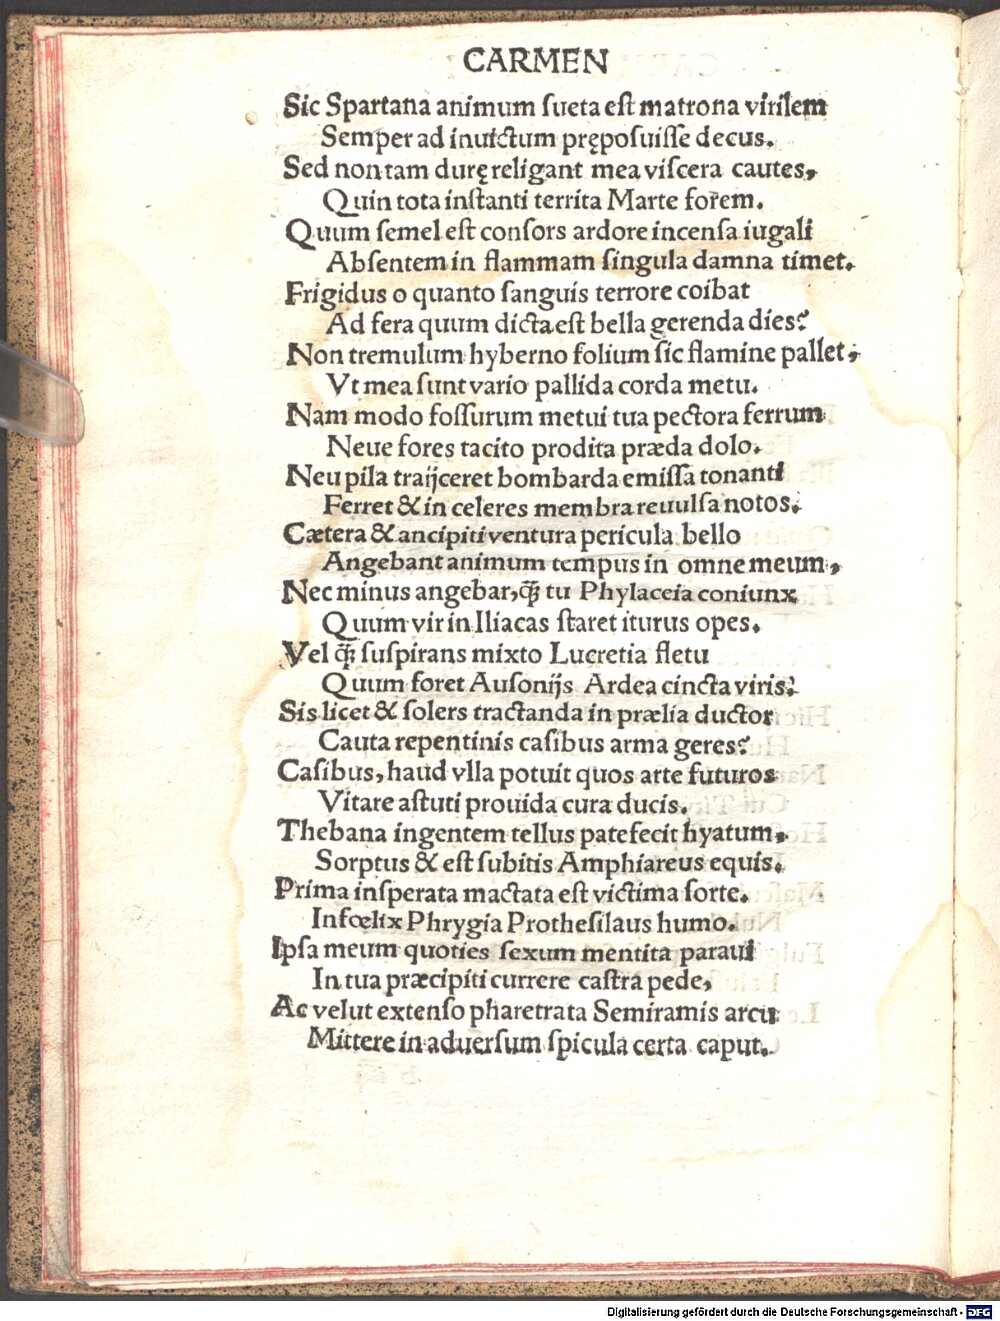 CARMEN
Sic Spartana animum ſueta eſt matrona virilem
Semper ad inuictum prępoſuiſſe decus.
Sed non tam durę religant mea viſcera cautes,
Quin tota inſtanti territa Marte forem.
Quum ſemel eſt conſors ardore incenſa iugali
Abſentem in flammam ſingula damna timet.
Frigidus o quanto ſanguis terrore coibat
Ad fera quum dicta eſt bella gerenda dies?
Non tremulum hyberno folium ſic flamine pallet,
Vt mea ſunt vario pallida corda metu.
Nam modo foſſurum metui tua pectora ferrum
Neue fores tacito prodita præda dolo.
Neu pila traijceret bombarda emiſſa tonanti
Ferret & in celeres membra reuulſa notos.
Cætera & ancipiti ventura pericula bello
Angebant animum tempus in omne meum,
Nec minus angebar, q̃ tu Phylaceia coniunx
Quum vir in Iliacas ſtaret iturus opes.
Vel q̃ ſuſpirans mixto Lucretia fletu
Quum foret Auſonijs Ardea cincta viris?
Sis licet & ſolers tractanda in prælia ductor
Cauta repentinis caſibus arma geres?
Caſibus, haud vlla potuit quos arte futuros
Vitare aſtuti prouida cura ducis.
Thebana ingentem tellus patefecit hyatum,
Sorptus & eſt ſubitis Amphiareus equis.
Prima inſperata mactata eſt victima ſorte.
Infœlix Phrygia Protheſilaus humo.
Ipſa meum quoties ſexum mentita paraui
In tua præcipiti currere caſtra pede,
Ac velut extenſo pharetrata Semiramis arcu
Mittere in aduerſum ſpicula certa caput.
Digitalisierung gefördert durch die Deutsche Forschungsgemeinschaft - DFG